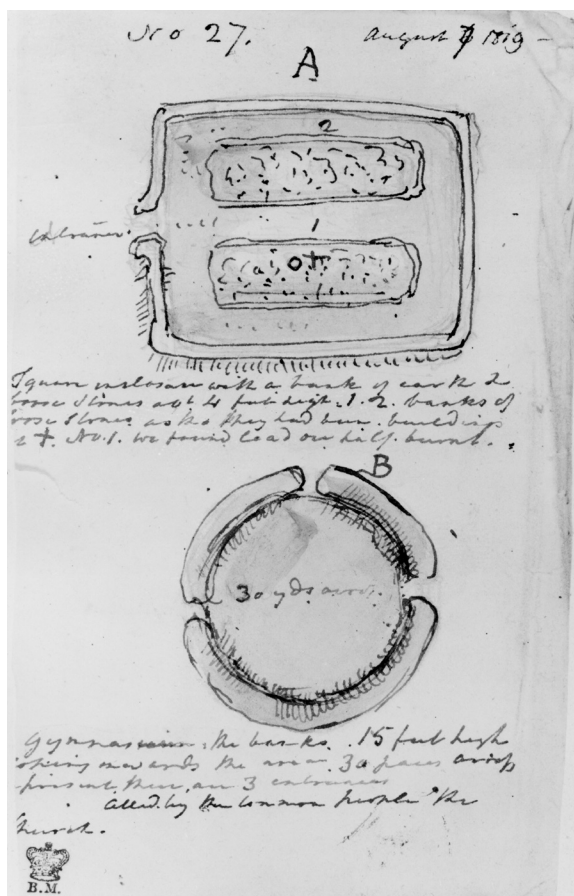 No 27. August 7 1819 —
A
2
1
entrance
Square inclosure with a bank of earth &
loose stones abt 4 feet high. 1. 2. banks of
loose stones as tho they had been buildings
at + No. 1. we found lead ore half burnt.
B
30 yds across
Gymnasium, the banks 15 feet high
sloping inwards the area 30 paces across
present there are 3 entrances
called by the common people "the
Church.
B.M.